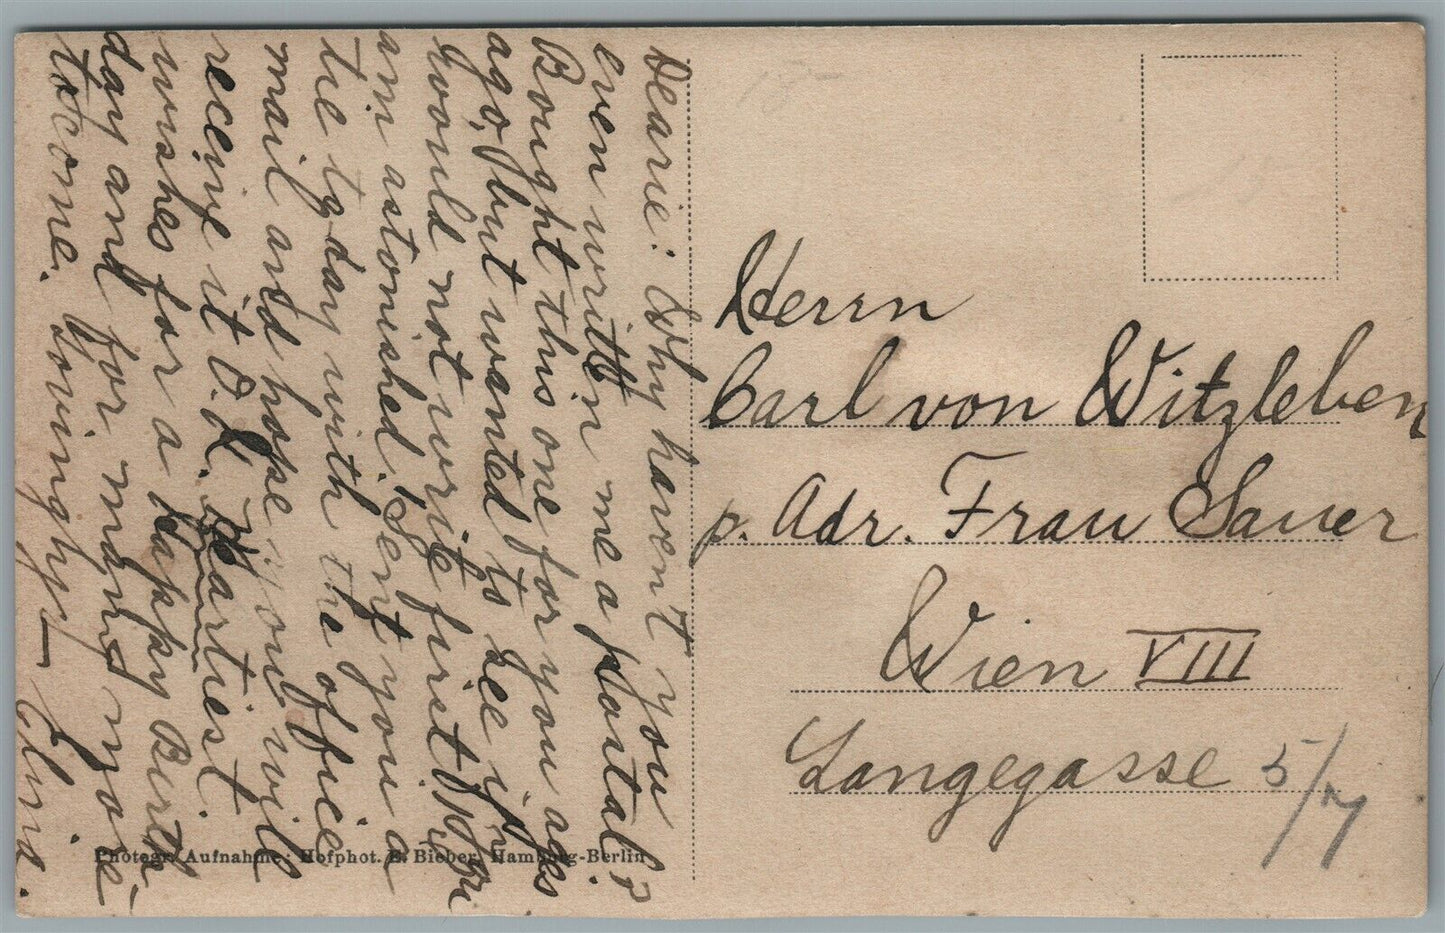 Dearie: Why haven't you
even written me a postal?
Bought this one for you ages
ago, but wanted to see if you
would not write first. You
am astonished! Sent you a
tie to day with the office
mail and hope you will
receive it O.K. Heartiest
wishes for a Happy Birth-
day and for many more
to come. Lovingly —
Herrn
Carl von Witzleben
p. Adr. Frau Sauer
Wien VIII
Langegasse 5/7
Photogr. Aufnahme: Hofphot. E. Bieber, Hamburg-Berlin